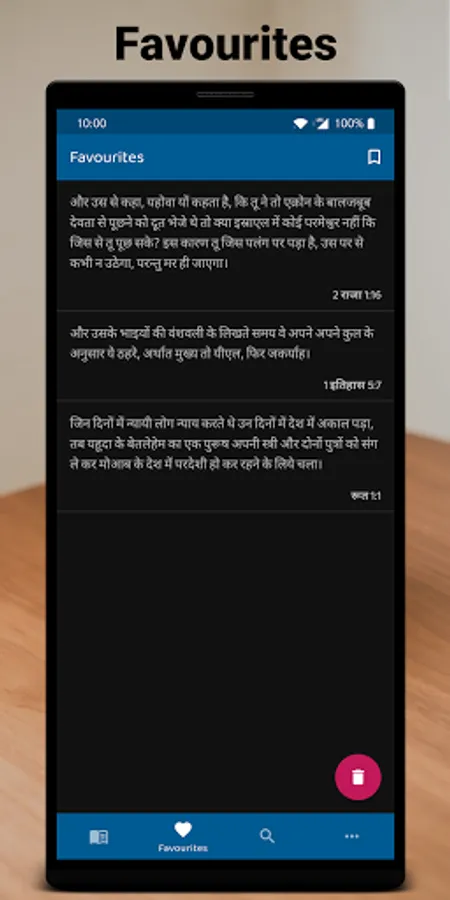 Favourites
10:00
100%
Favourites
और उस से कहा, यहोवा यों कहता है, कि तू ने तो एक्रोन के बालजबूब
देवता से पूछने को दूत भेजे थे तो क्या इस्राएल में कोई परमेश्वर नहीं कि
जिस से तू पूछ सके? इस कारण तू जिस पलंग पर पड़ा है, उस पर से
कभी न उठेगा, परन्तु मर ही जाएगा।
2 राजा 1:16
और उसके भाइयों की वंशवली के लिखते समय वे अपने अपने कुल के
अनुसार ये ठहरे, अर्थात मुख्य तो यीएल, फिर जकर्याह।
1 इतिहास 5:7
जिन दिनों में न्यायी लोग न्याय करते थे उन दिनों में देश में अकाल पड़ा,
तब यहूदा के बेतलेहेम का एक पुरूष अपनी स्त्री और दोनों पुत्रों को संग
ले कर मोआब के देश में परदेशी हो कर रहने के लिये चला।
रूत 1:1
Favourites